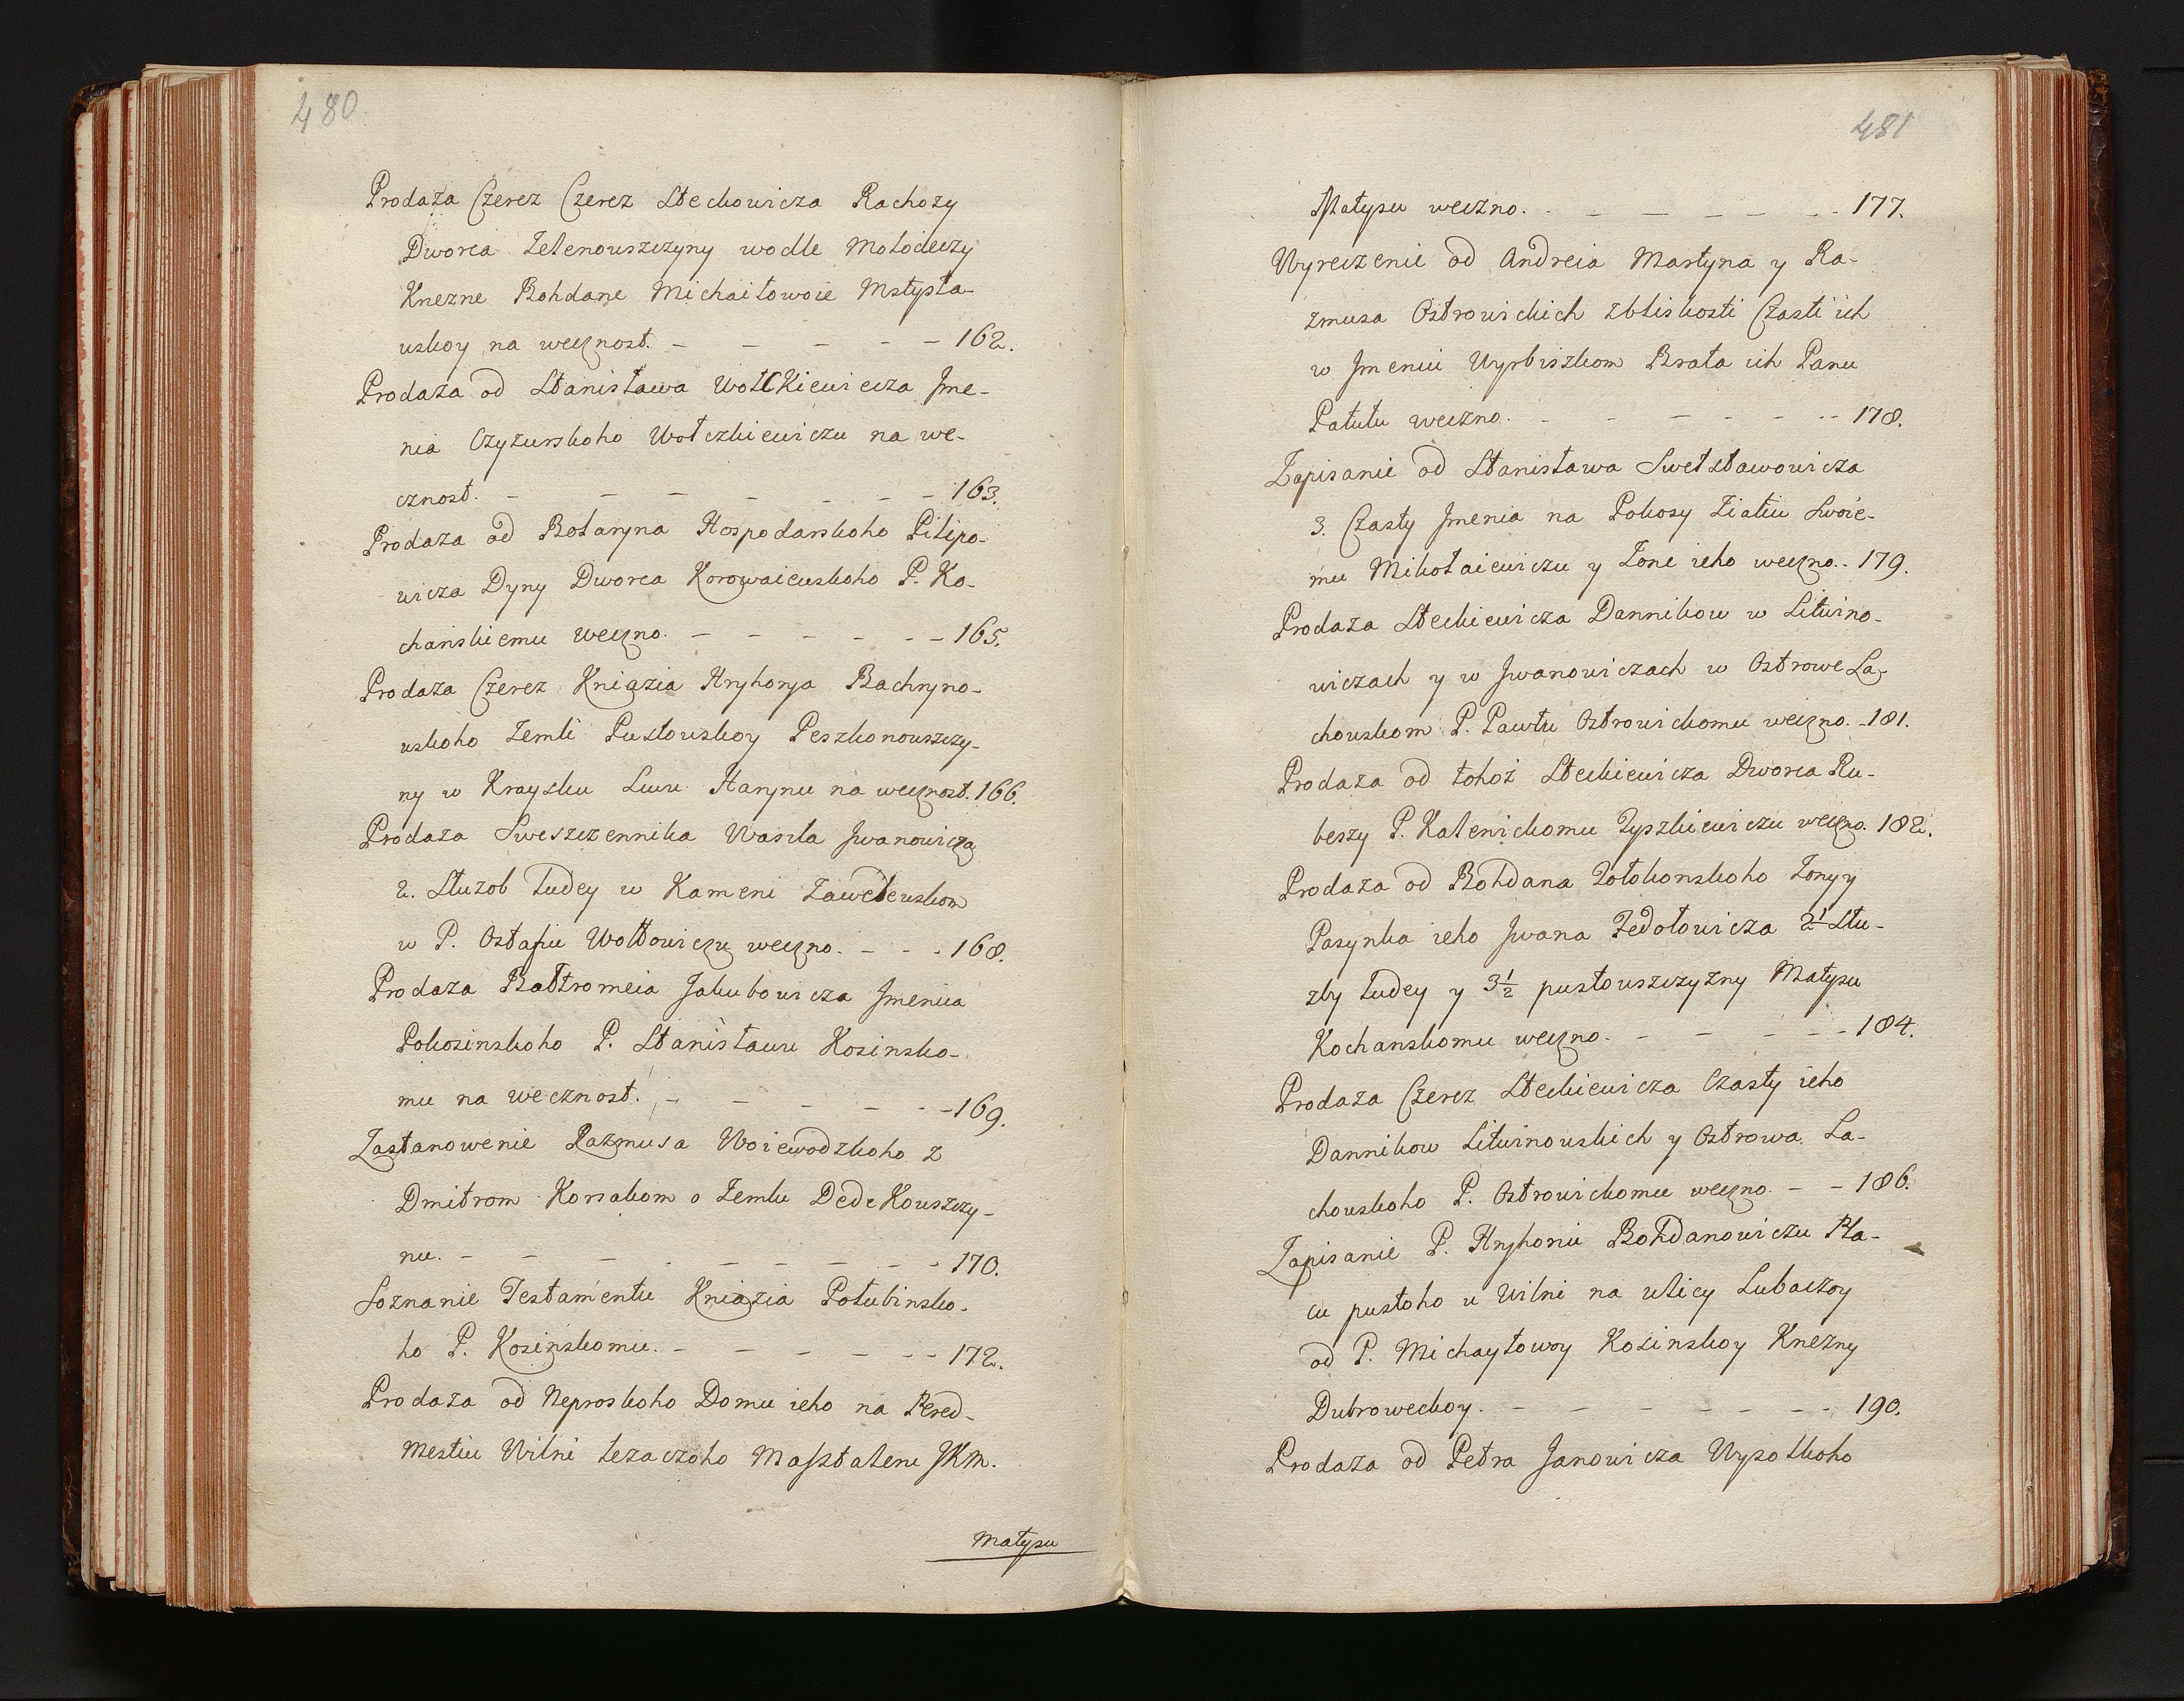 480
Prodaża Czerez Czerez Steckowicza Rachozy
Dworca Zelenouszczyny wodle Mołodeczy
Knezne Bohdane Michaiłowoie Mstysła-
uskoy na wecznost. - - - - - 162.
Prodaża od Stanisława Wołckiewicza Jme-
nia Czyżurskoho Wołczkiewiczu na we-
cznost. - - - - - - - 163.
Prodaża od Bołaryna Hospodarskoho Pilipo-
wicza Dyny Dworca Korowaiewskoho P. Ko-
chańskiemu weczno. - - - - - - 165.
Prodaża Czerez Kniązia Hryhorya Bachryno-
uskoho Zemli Pustouskoy Peszkonouszczy-
ny w Kraysku Lwu Harynu na wecznost. 166.
Prodaża Sweszczennika Wasila Jwanowicza
2. Służob Ludey w Kameni Zaweleuskom
w P. Ostafiu Wołłowiczu weczno. - - - 168.
Prodaża Bałtromeia Jakubowicza Jmenia
Pokosinskoho P. Stanisławu Kosinsko-
mu na wecznost. - - - - - - 169.
Zastanowenie Razmusa Woiewodzkoho z
Dmitrom Korsakom o Zemlu Dedekouszczy-
nu. - - - - - - - - - 170.
Soznanie Testamentu Kniązia Połubinsko-
ho P. Kosinskomu. - - - - - - 172.
Prodaża od Neproskoho Domu ieho na Pered-
mestiu Wilni leżaczoho Masztaleru JKM.
Matysu
481
Matysu weczno. - - - - - - - 177.
Wyreczenie od Andreia Martyna y Ra-
zmusa Ostrowickich zbliskosti Czasti ich
w Jmeniu Wyrbiszkom Brata ich Panu
Patutu weczno. - - - - - - - 178.
Zapisanie od Stanisława Swetsławowicza
3. Czasty Jmenia na Pokosy Ziatiu Swoie-
mu Mikołaiewiczu y Żone ieho weczno. - 179.
Prodaża Steckiewicza Dannikow w Litwino-
wiczach y w Jwanowiczach w Ostrowe La-
chouskom P. Pawłu Ostrowickomu weczno. - 181.
Prodaża od tohoż Steckiewicza Dworca Ru-
beszy P. Kalenickomu Tyszkiewiczu weczno. 182.
Prodaża od Bohdana Zołokonskoho Żony y
Pasynka ieho Jwana Fedotowicza 2½ Słu-
zby Ludey y 3½ pustouszczyzny Matysu
Kochanskomu weczno. - - - - - 184.
Prodaża Czerez Steckiewicza Czasty ieho
Dannikow Litwinouskich y Ostrowa La-
chouskoho P. Ostrowickomu weczno. - - 186.
Zapisanie P. Hryhoriu Bohdanowiczu Pla-
cu pustoho u Wilni na ulicy Lubaczoy
od P. Michayłowoy Kosinskoy Knezny
Dubroweckoy. - - - - - - - 190.
Prodaża od Petra Janowicza Wysockoho